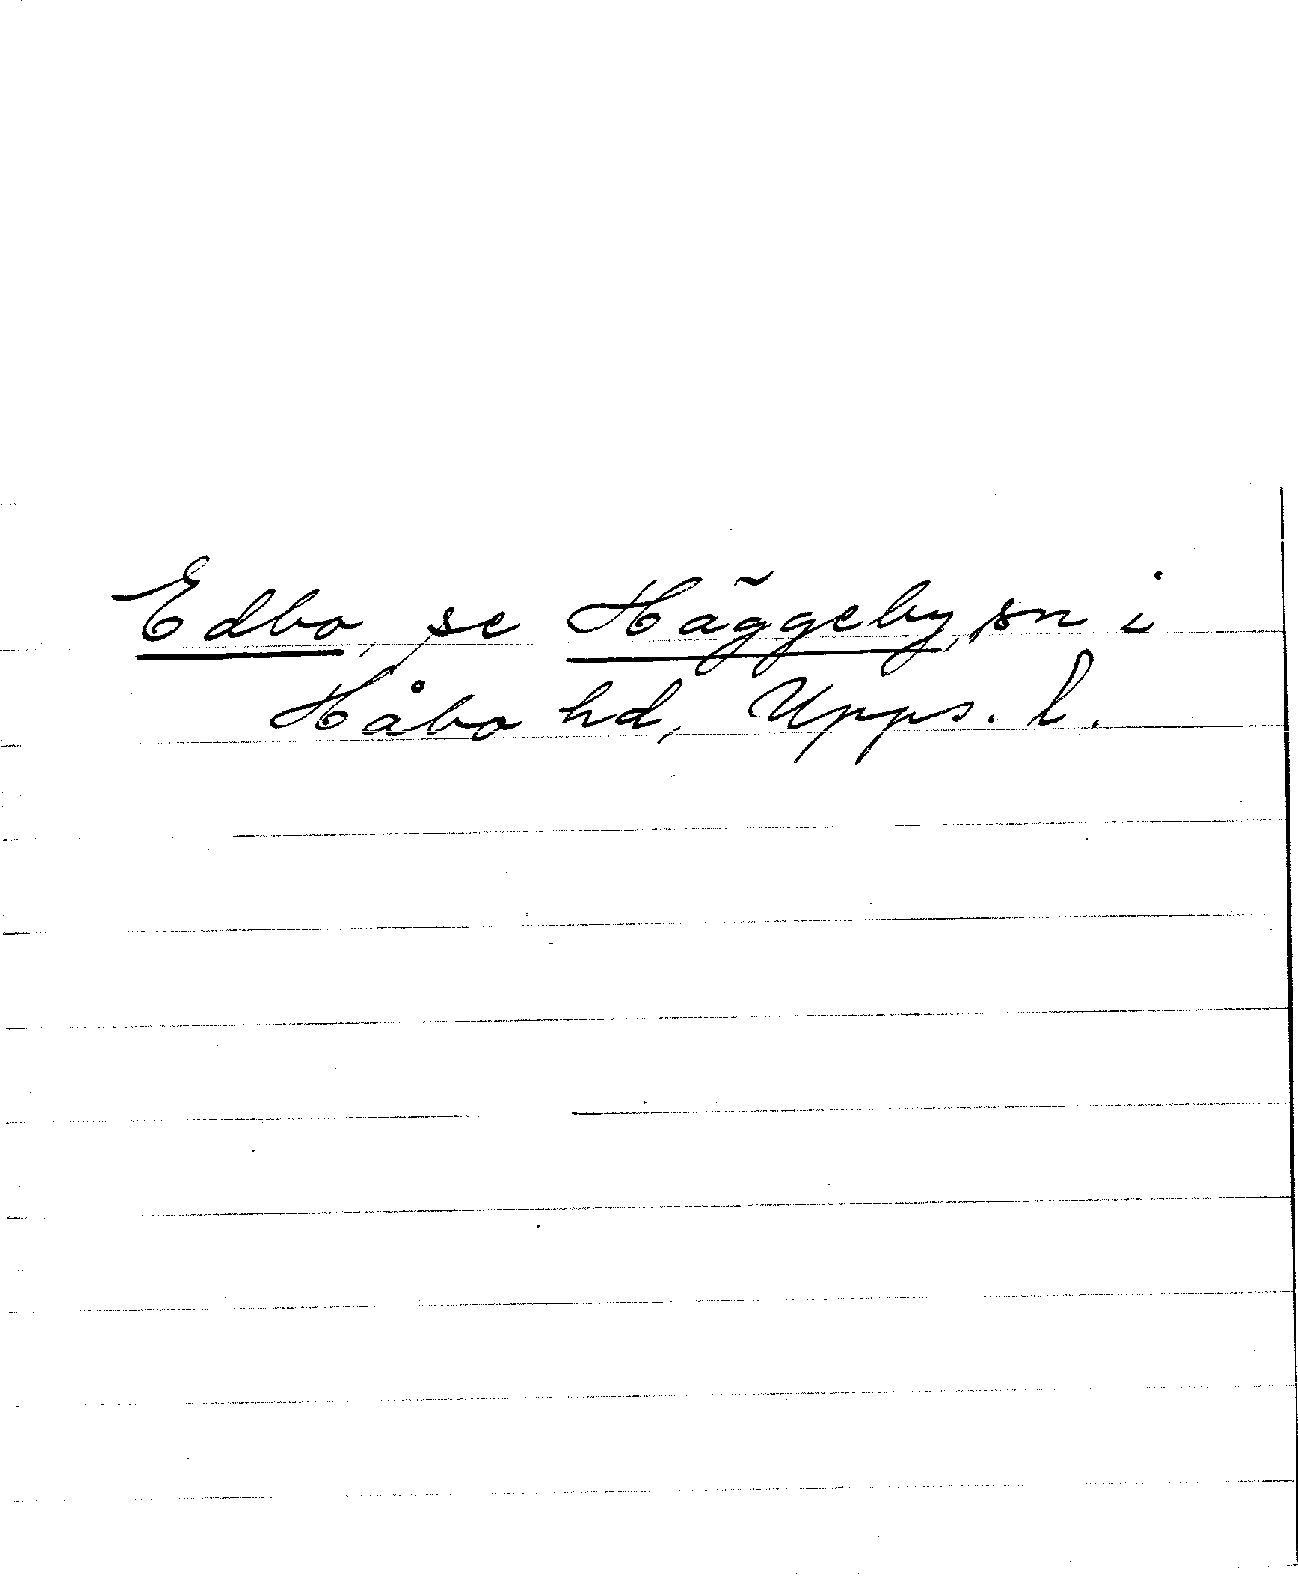 Edbo, se Häggeby sn i
Håbo hd, Upps. l.